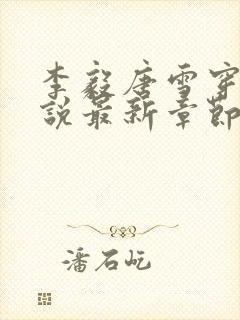 李毅唐雪穿
說最新章節
潘石屹